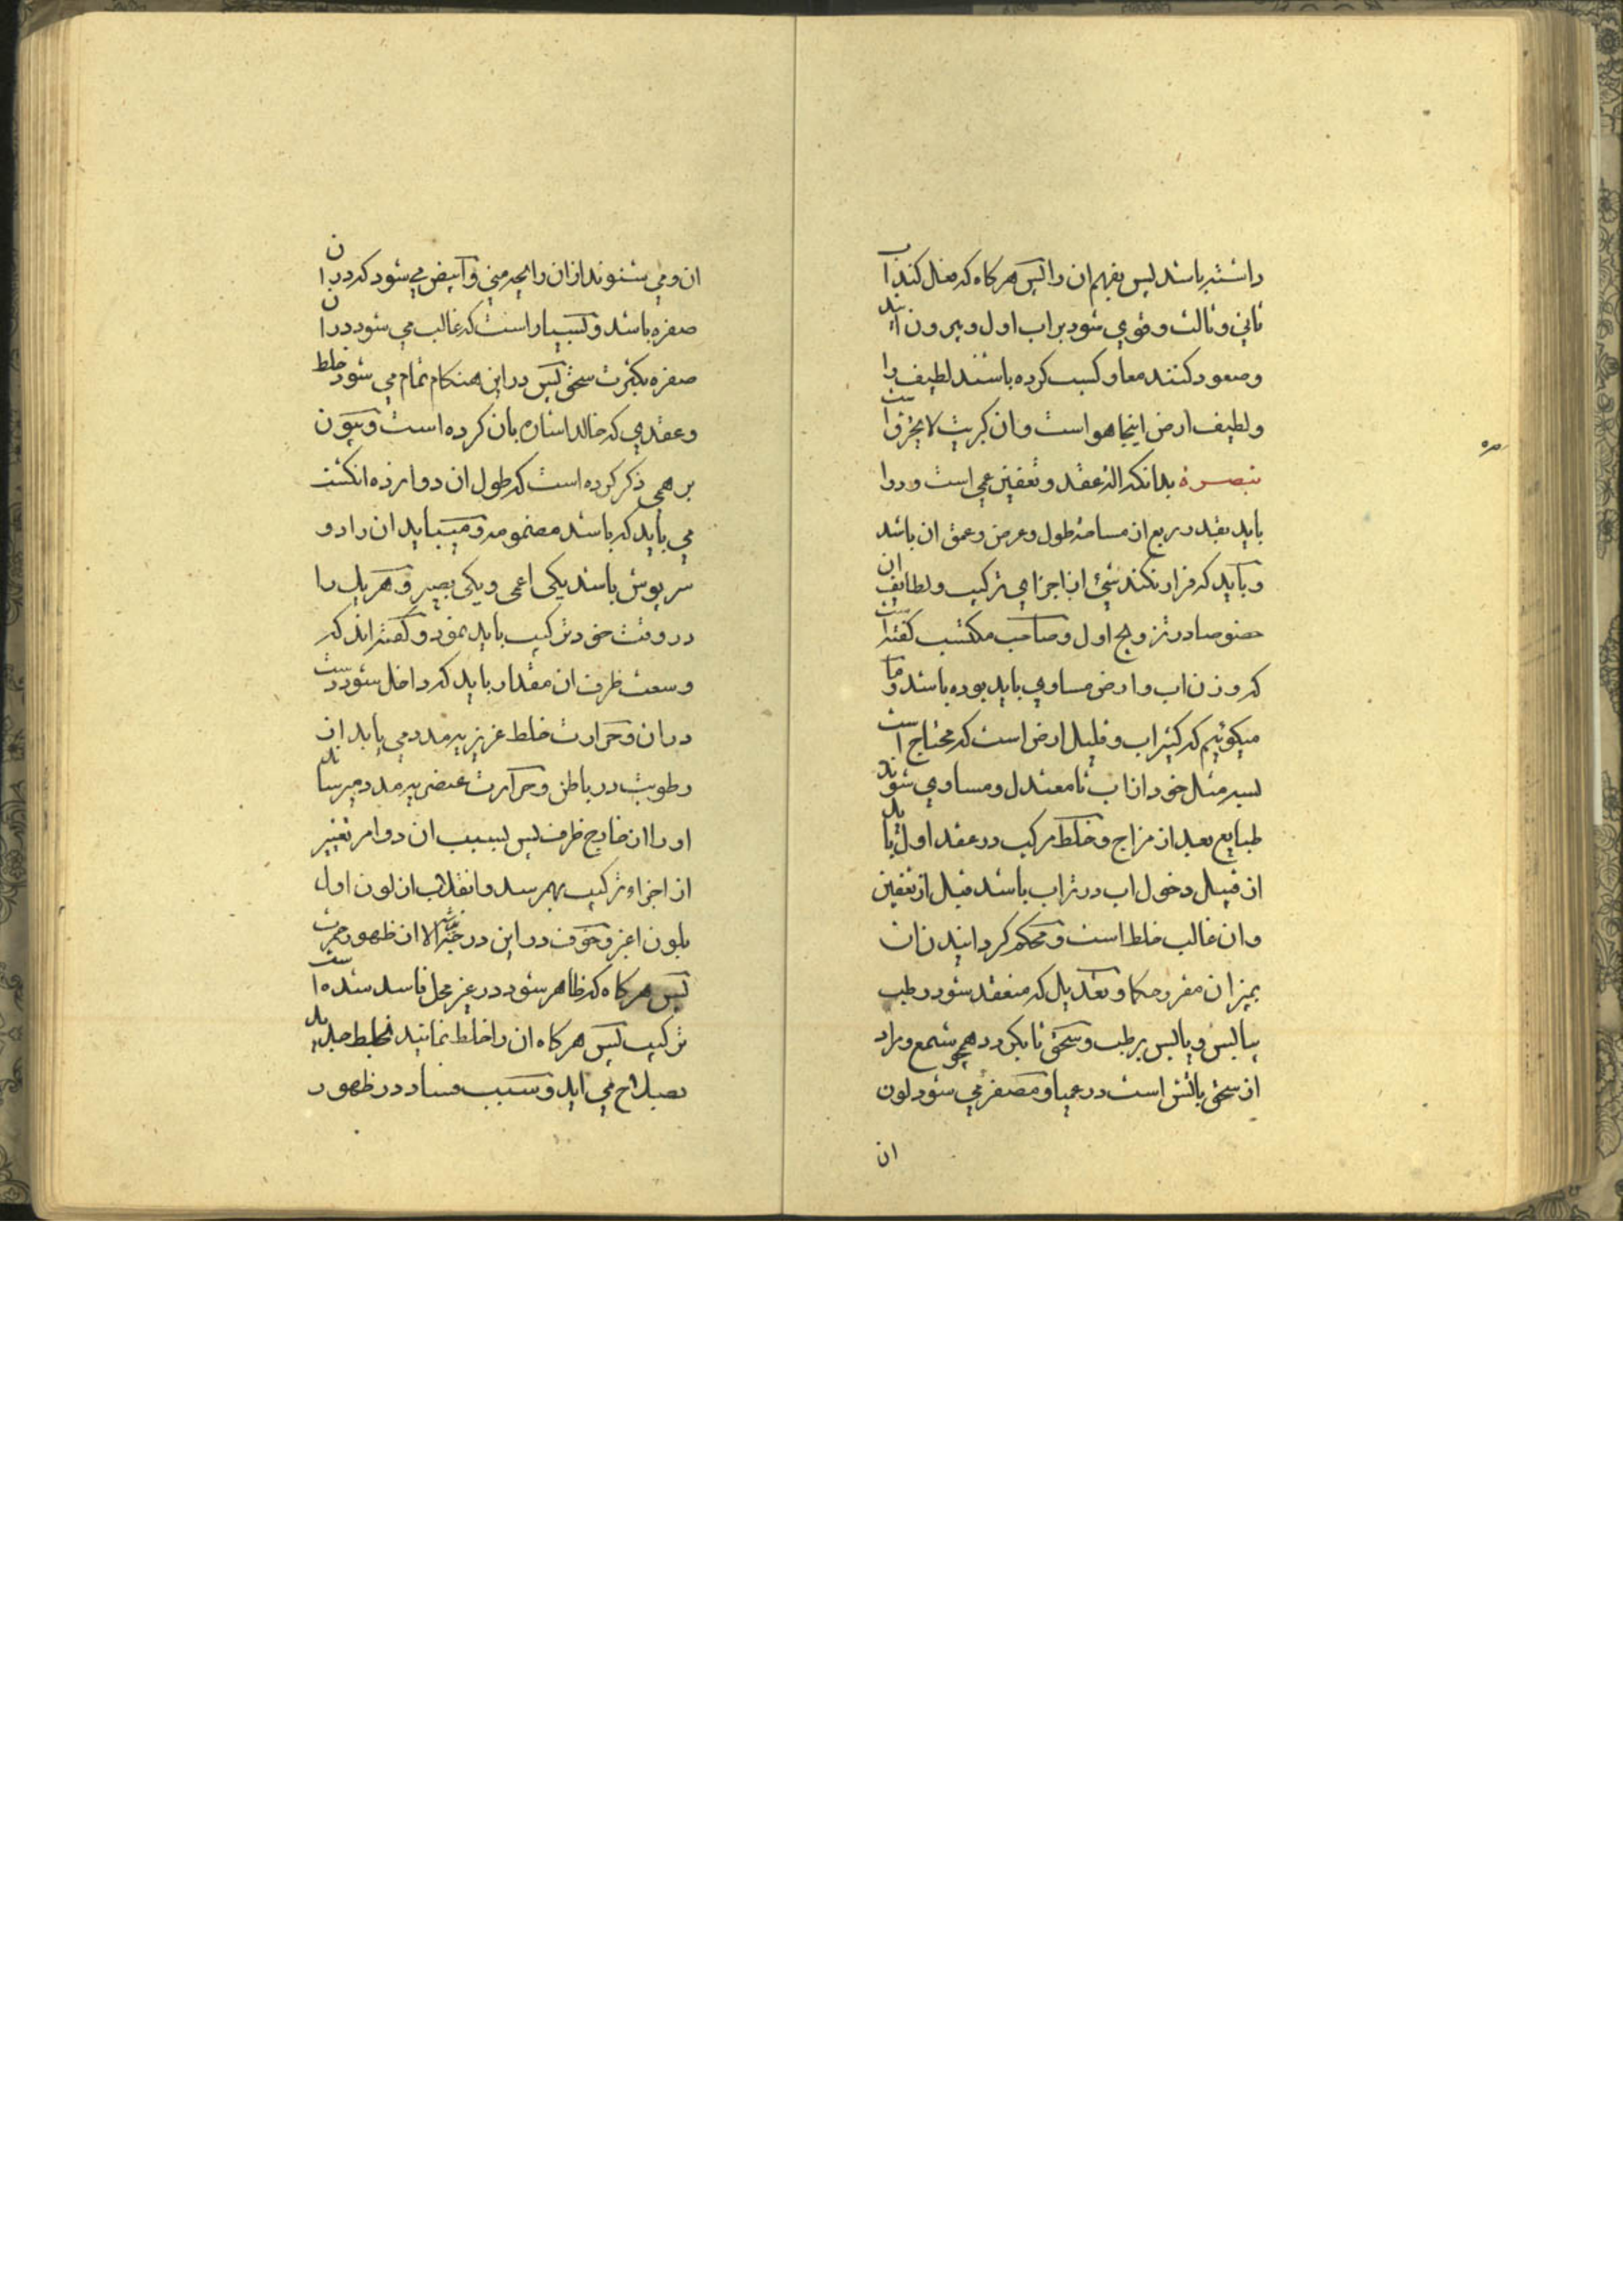 داشته باشد پس بفهم ان را پس هرگاه که فعل کند اب
ثاني و ثالث و قوي شود بر اب اول و بیرون ایند
و صعود کنند معا و کسب کرده باشند لطیف را
و لطیف ارض اینجا هواست و ان کبریت لایحترق است
تبصرة بدانکه اله عقد و تعفین عمی است و دوا
باید بقدر ربع از مسامته طول و عرض و عمق ان باشد
و باید که فرار نکند شئ از اجزاي ترکیب و لطایف ان
خصوصا در تزویج اول و صاحب مکتسب کفته است
که وزن اب و ارض مساوي باید بوده باشد و ما
میکوییم که کثیر اب و قلیل ارض است که محتاج است
بسه مثل خود از اب تا معتدل و مساوي شوند
طبایع بعد از مزاج و خلط مرکب در عقد اول باید
از قبیل دخول اب در تراب باشد قبل از تعفین
و ان غالب خلط است و محکم کردانیدن ان
بمیزان مقرر حکما و تعدیل که منعقد شود رطب
بیابس و یابس برطب و سحق تا بکردد همچو شمع و مراد
از سحق باتش است در عمیا و مصفر مي شود لون
ان
ان و مي شنوند از ان رایحه مني و ابیض مي شود که در ان
صفره باشد و بسیار است که غالب مي شود در ان
صفره بکثرت سحق پس در این هنکام تمام مي شود خلط
و عقدي که خالد اشاره بان کرده است و بیون
برهمي ذکر کرده است که طول ان دوازده انکشت
مي باید که باشد مضمومه و میباید ان را دو
سرپوش باشد یکی اعمی و یکی بصیر و هر یك را
در وقت خود ترکیب باید نمود و کفته اند که
وسعت ظرف ان مقدار باید که داخل شود دست
در ان و حرارت خلط غریزیه مدد مي یابد از
رطوبت در باطن و حرارت عنصریه مدد میرساند
او را از خارج ظرف پس بسبب ان دو امر تغییر
از اجزاء ترکیب بهمرسد و انقلاب از لون اول
بلون اغبر و خوف در این در خبر الا از ظهور حمرت
پس هرگاه که ظاهر شود در غیر محل فاسد شده است
ترکیب پس هرگاه ان را خلط نمایند بخلط جدید
بصلاح مي اید و سبب فساد در ظهور